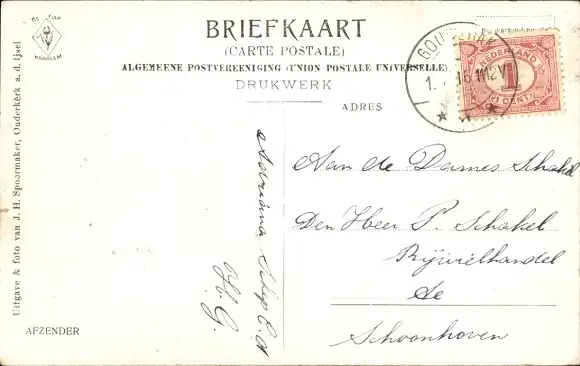 DE TULP
HAARLEM
BRIEFKAART
(CARTE POSTALE)
ALGEMEENE POSTVEREENIGING (UNION POSTALE UNIVERSELLE)
DRUKWERK
ADRES
GOUDERAK
1. 16 11-12 V
NEDERLAND
1
(1 CENT)
Uitgave & foto van J. H. Spoormaker, Ouderkerk a. d. IJsel
Adriana Schep C.d
H. G.
Aan de Dames Schakel
Den Heer P. Schakel
Rijwielhandel
te
Schoonhoven
AFZENDER